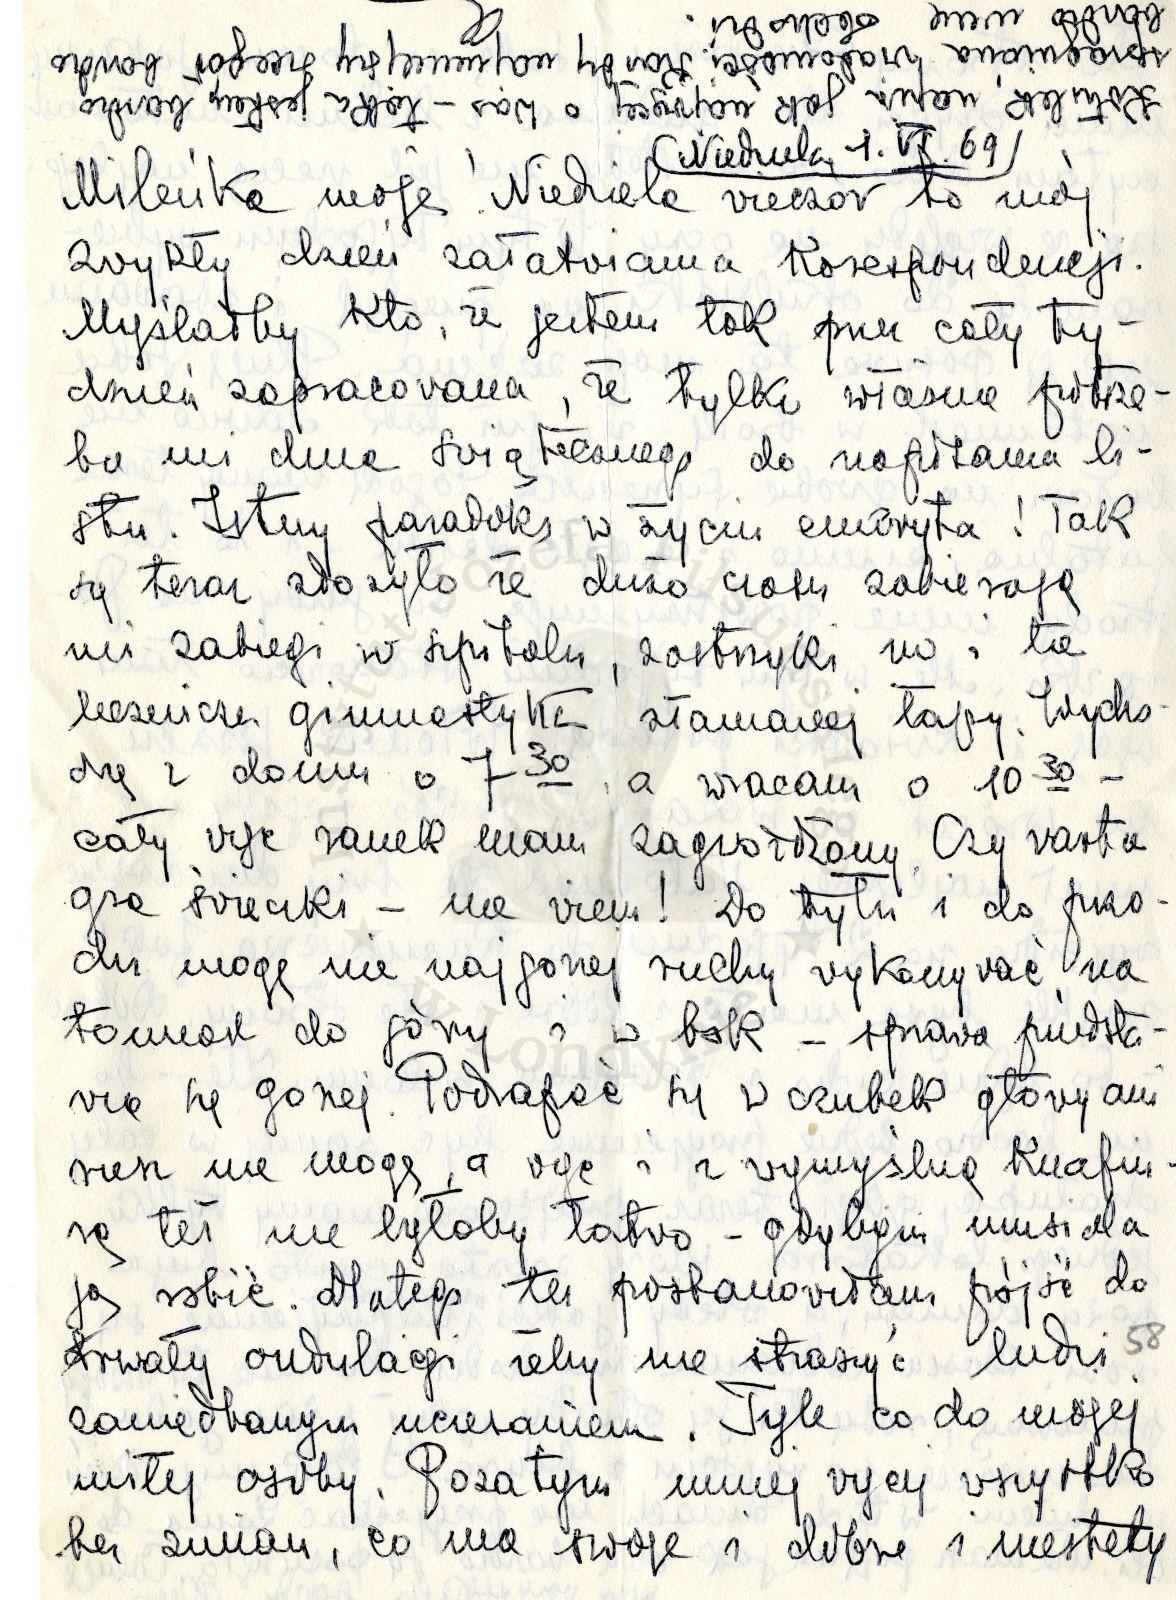 Kotulek, napisz jak najwięcej o Was – taka jestem bardzo
spragniona wiadomości. Każdy najmniejszy szczegół bardzo
bardzo mnie obchodzi.
(Niedziela, 1. VI. 69)
Mileńka moja! Niedziela wieczór to mój
zwykły dzień załatwiania korespondencji.
Myślałby kto, że jestem tak przez cały ty-
dzień zapracowana, że tylko właśnie potrze-
ba mi dnia świątecznego do napisania li-
stu. Istny paradoks w życiu emeryta! Tak
się teraz złożyło że dużo czasu zabierają
mi zabiegi w szpitalu, zastrzyki no i ta
lecznicza gimnastyka złamanej łapy. Wycho-
dzę z domu o 7 30 a wracam o 10 30 –
cały więc ranek mam zagwożdżony. Czy warta
gra świeczki – nie wiem! Do tyłu i do przo-
du mogę nie najgorzej ruchy wykonywać na
tomiast do góry i w bok – sprawa przedsta-
wia się gorzej. Podrapać się w czubek głowy ani
rusz nie mogę, a więc i z wymyślną koafiu-
rą też nie byłoby łatwo – gdybym musiała
ją robić. Dlatego też postanowiłam pójść do
trwałej ondulacji żeby nie straszyć ludzi
58
zaniedbanym uczesaniem. Tyle co do mojej
miłej osoby. Pozatym mniej więcej wszystko
bez zmian, co ma swoje i dobre i niestety